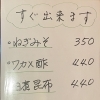 すぐ出来ます
・ねぎみそ 350
・ワカメ酢 440
・昆布 440